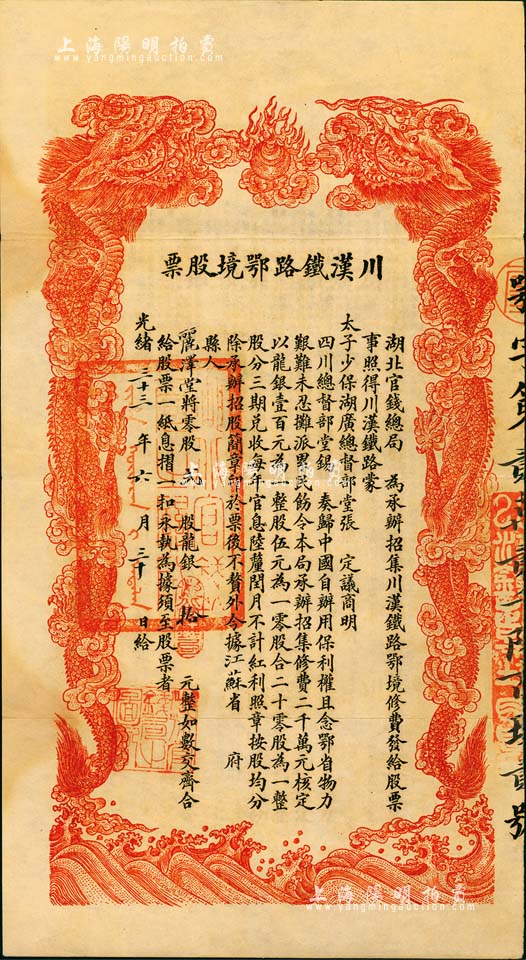 上海陽明拍賣
www.yangmingauction.com
川漢鐵路鄂境股票
湖北官錢總局 為承辦招集川漢鐵路鄂境修費發給股票
事照得川漢鐵路蒙
太子少保湖廣總督部堂張 定議商明
四川總督部堂錫 奏歸中國自辦用保利權且念鄂省物力
艱難未忍攤派累民飭令本局承辦招集修費二千萬元核定
以龍銀壹百元為一整股伍元為一零股合二十零股為一整
股分三期兌收每年官息陸釐閏月不計紅利照章按股均分
除承辦招股簡章 於票後不贅外今據江蘇省 府
縣人
麗澤堂將零股 貳 股龍銀 拾 元整如數交齊合
給股票一紙息摺一扣永執為據須至股票者
光緒三十三年六月三十日給
上海陽明拍賣
www.yangmingauction.com
上海陽明拍賣
www.yangmingauction.com